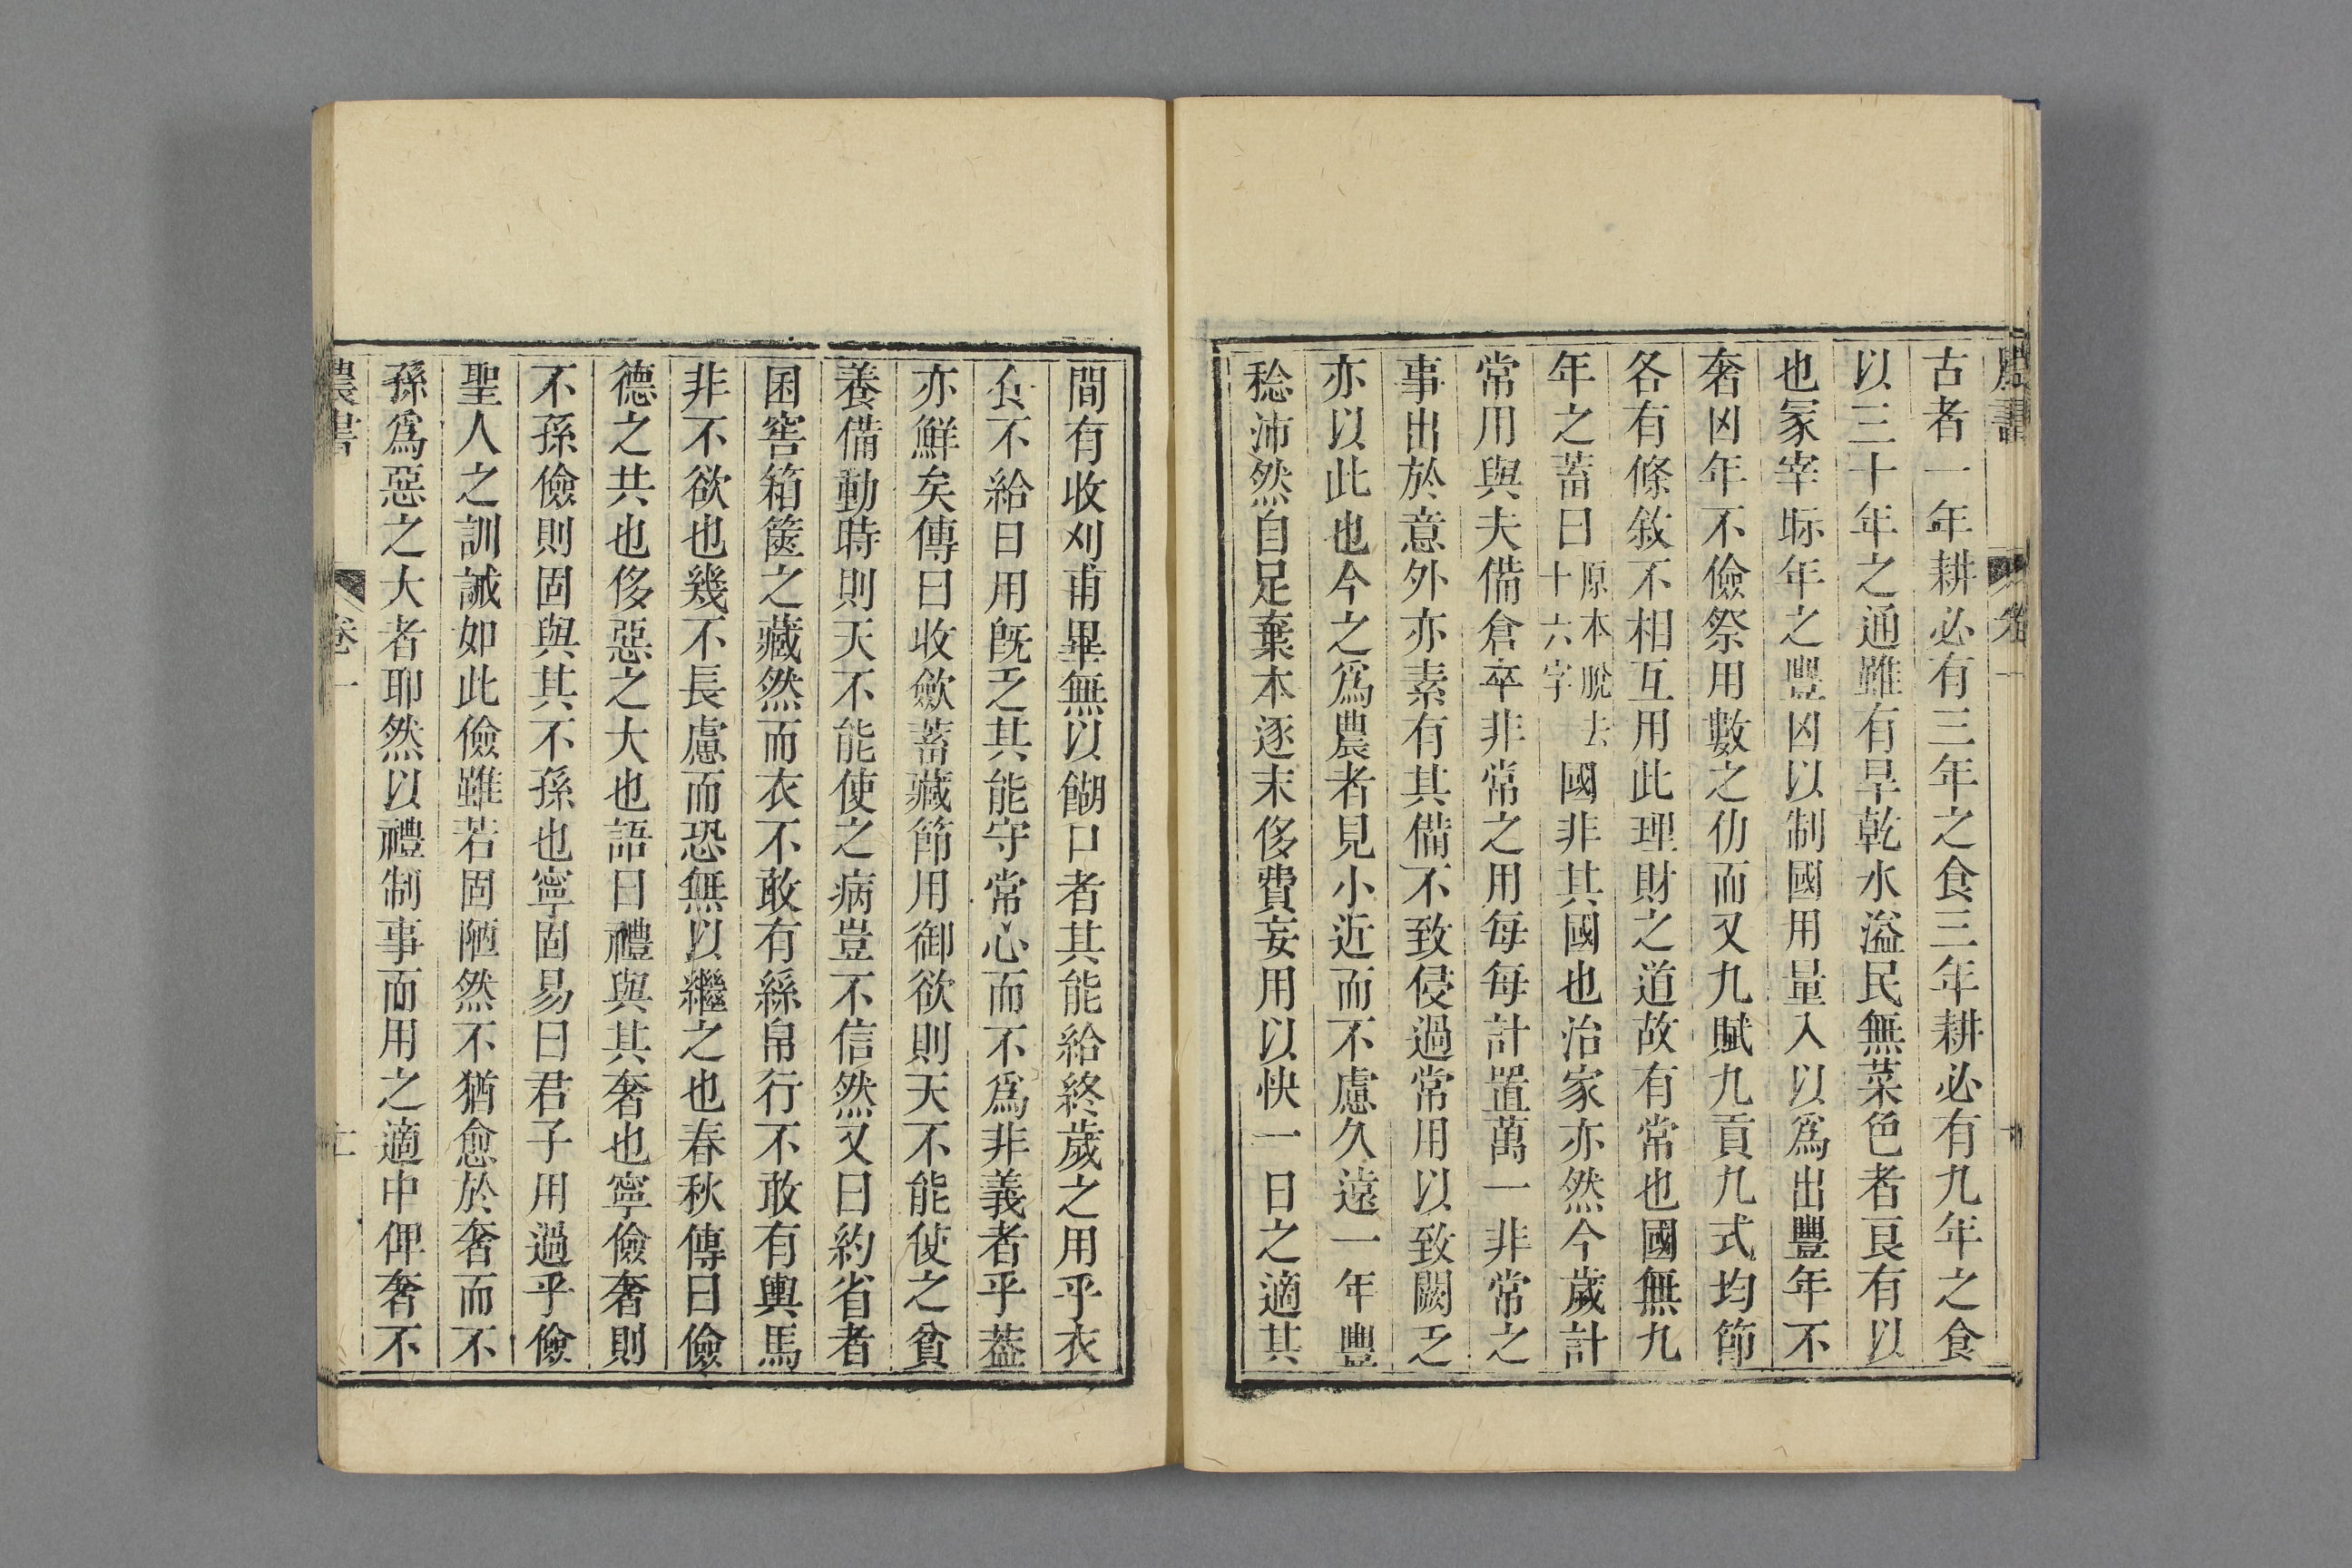 農書 卷一
古者一年耕必有三年之食三年耕必有九年之食
以三十年之通雖有旱乾水溢民無菜色者良有以
也冢宰眎年之豐凶以制國用量入以爲出豐年不
奢凶年不儉祭用數之仂而又九賦九貢九式均節
各有條敘不相互用此理財之道故有常也國無九
年之蓄曰原本脫去十六字國非其國也治家亦然今歲計
常用與夫備倉卒非常之用每每計置萬一非常之
事出於意外亦素有其備不致侵過常用以致闕乏
亦以此也今之爲農者見小近而不慮久遠一年豐
稔沛然自足棄本逐末侈費妄用以快一日之適其
間有收刈甫畢無以餬口者其能給終歲之用乎衣
食不給日用旣乏其能守常心而不爲非義者乎蓋
亦鮮矣傳曰收斂蓄藏節用御欲則天不能使之貧
養備動時則天不能使之病豈不信然又曰約省者
囷窖箱篋之藏然而衣不敢有絲帛行不敢有輿馬
非不欲也幾不長慮而恐無以繼之也春秋傳曰儉
德之共也侈惡之大也語曰禮與其奢也寧儉奢則
不孫儉則固與其不孫也寧固易曰君子用過乎儉
聖人之訓誡如此儉雖若固陋然不猶愈於奢而不
孫爲惡之大者耶然以禮制事而用之適中俾奢不
農書 卷一